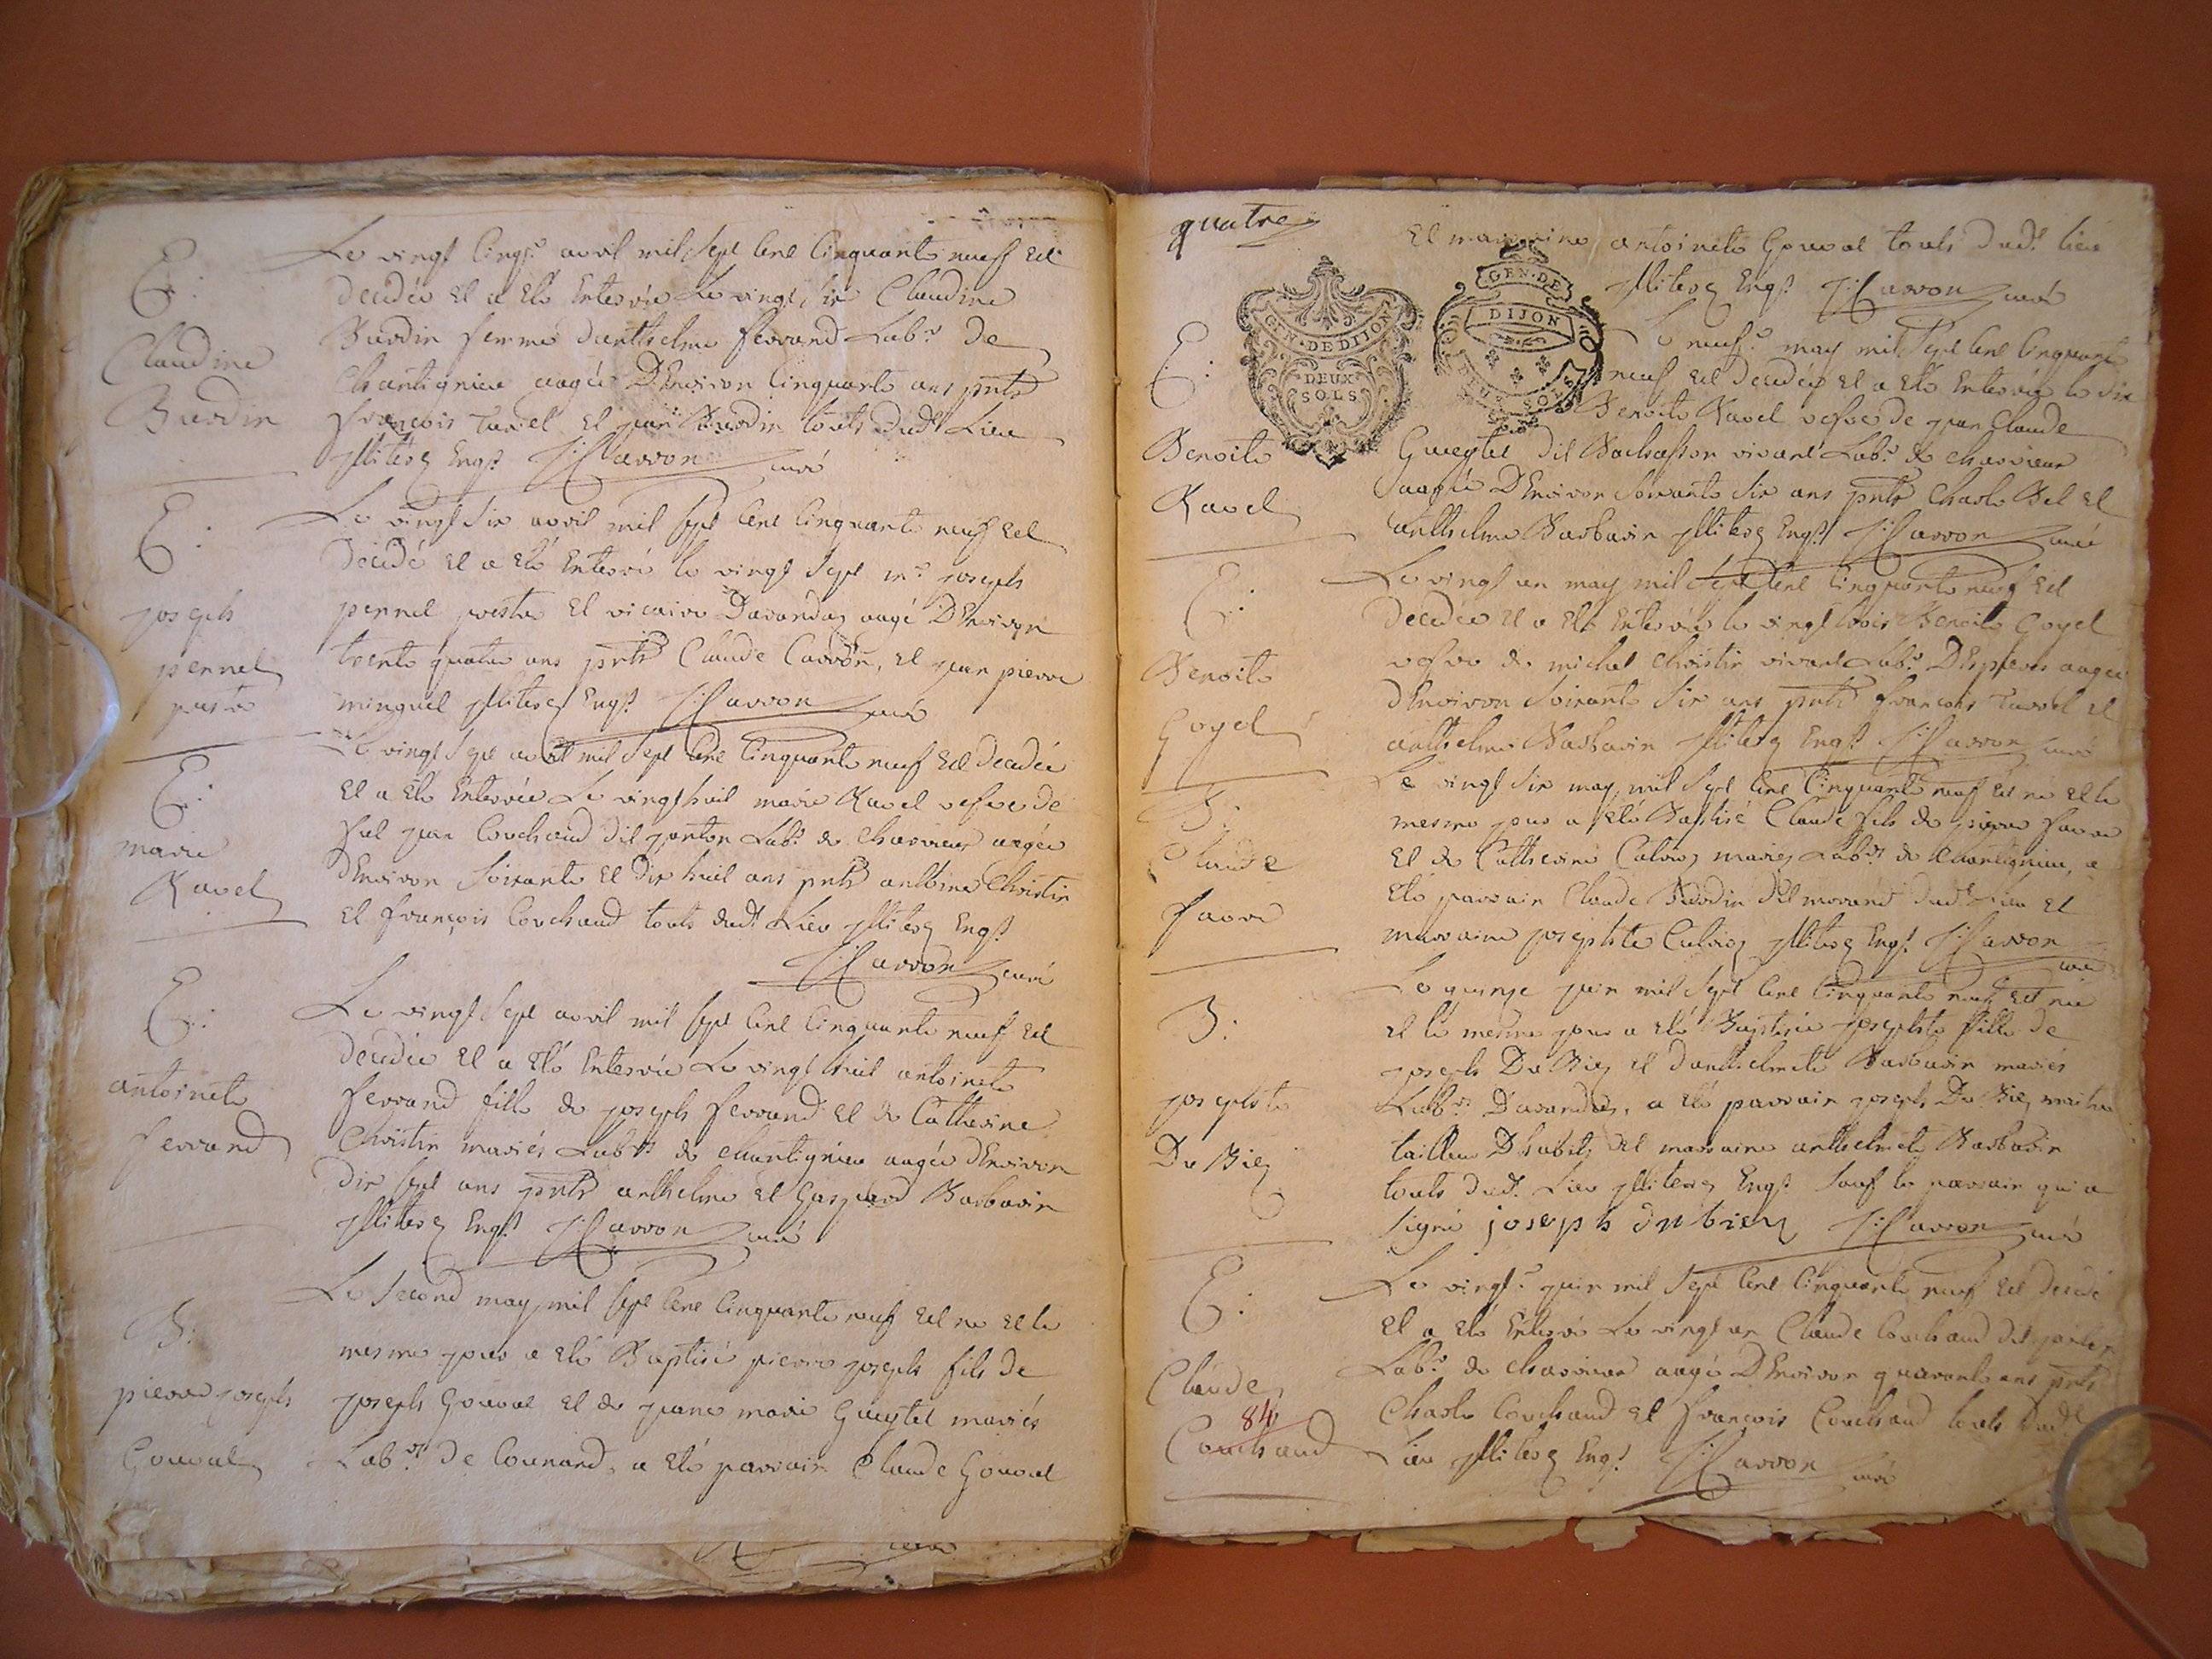 E:
Claudine
Burdin
Le vingt cinq.e avril mil sept cent cinquante neuf est
decedée et a eté enterrée le vingt six Claudine
Burdin femme danthelme ferrand Lab.r de
Chantignieu aagée D'Environ Cinquante ans pnts
françois tavel et jean Burdin touts dud.t Lieu
illiterez Enq.s Carron curé
E:
joseph
pernet
Le vingt six avril mil sept cent cinquante neuf est
Décédé et a eté Enterré le vingt sept m.e joseph
pernet prestre et vicaire Davandaz aagé D'Environ
trente quatre ans pnts Claude Carron, et jean pierre
minguet illiterez Enq.s Carron curé
E:
marie
Ravel
Le vingt sept avril mil sept cent cinquante neuf est decedée
et a eté Enterrée Le vingt huit marie Ravel vefve de
jean Couchaud dit janton Lab.r de Charvieux aagée
d'Environ soixante et dix huit ans pnts anthoine Christin
et françois Couchaud touts dud.t Lieu illiterez Enq.s
Carron curé
E:
antoinete
ferrand
Le vingt sept avril mil sept cent cinquante neuf est
Decedée et a eté Enterrée Le vingt huit antoinete
ferrand fille de joseph ferrand et de Catherine
Christin mariés Lab.rs de Chantignieu aagée d'Environ
Dix sept ans pnts anthelme et Gaspard Barbarin
illiterez Enq.s Carron curé
B:
pierre joseph
Gouval
Le Second may mil sept cent cinquante neuf est né et le
mesme jour a eté Baptisé pierre joseph fils de
joseph Gouval et de jeanne marie Gueytet mariés
Lab.rs de Counand, a eté parrain Claude Gouval
quatre
et marraine antoinete Gouval touts dud.t lieu
illiterez Enq.s Carron curé
GEN · DE DIJON
DEUX
SOLS
GEN · DE
DIJON
DEUX SOLS
E:
Benoite
Ravel
Le neuf.e may mil sept cent cinquante
neuf est decedée et a eté Enterrée le dix
Benoite Ravel vefve de jean Claude
Gueytet dit Bachasson vivant Lab.r de Charvieux
aagée D'Environ soixante six ans pnts Charle Bel et
anthelme Barbarin illiterez Enq.s Carron curé
E:
Benoite
Goyet
Le vingt un may mil sept cent cinquante neuf est
Decedée et a eté Enterrée le vingt trois Benoite Goyet
vefve de michel Christin vivant Lab.r aagée
d'Environ soixante six ans pnts françois tavel et
anthelme Barbarin illiterez Enq.s Carron curé
B:
Claude
favre
Le vingt six may mil sept cent cinquante neuf est né et le
mesme jour a eté Baptisé Claude fils de pierre favre
et de Catherine mariez Lab.rs de Chantignieu, a
eté parrain Claude Burdin dit morand dud.t Lieu et
marraine josephte illiterez Enq.s Carron
curé
B:
josephte
Du Biez
Le quinze juin mil sept cent cinquante neuf est née
et le mesme jour a eté Baptisée josephte fille de
joseph Du Biez et d'anthelmete Barbarin mariés
Lab.rs Davandaz, a eté parrain joseph Du Biez maitre
tailleur D'habits et marraine anthelmete Barbarin
touts dud.t Lieu illiterez Enq.s Sauf le parrain qui a
signé joseph dubiez Carron curé
E:
Claude
84
Couchaud
Le vingt.e juin mil sept cent cinquante neuf est decedé
et a eté Enterré Le vingt un Claude Couchaud dit janton
Lab.r de Charvieux aagé D'Environ quarante ans pnts
Charle Couchaud et françois Couchaud touts dud.t
Lieu illiterez Enq.s Carron curé